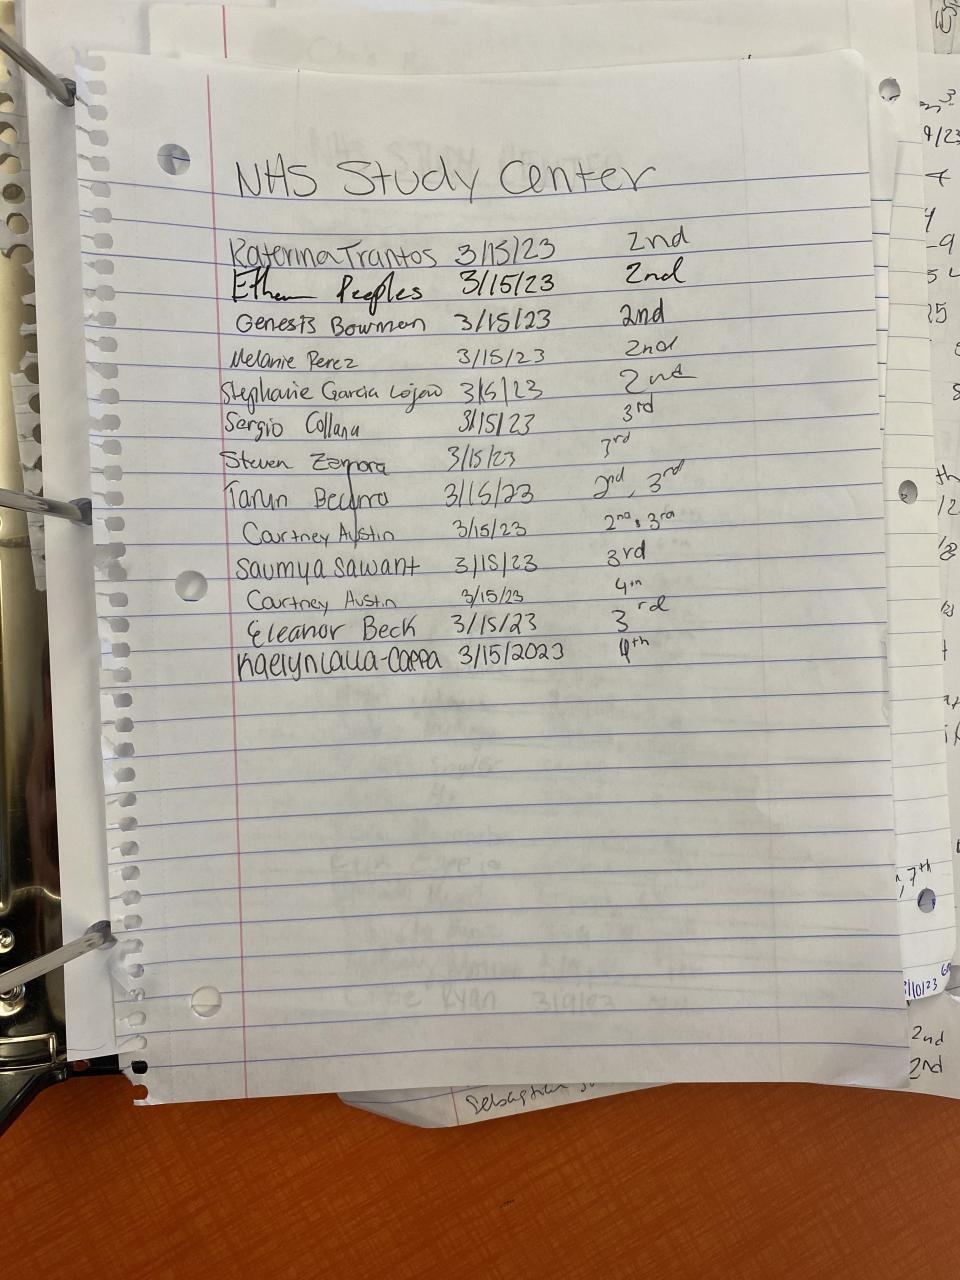 NHS Study Center
Katerina Trantos 3/15/23 2nd
Ethan Peoples 3/15/23 2nd
Genesis Bowman 3/15/23 2nd
Melanie Perez 3/15/23 2nd
Stephanie Garcia 3/15/23 2nd
Sergio Collana 3/15/23 3rd
Steven Zamora 3/15/23 3rd
Tarun 3/15/23 2nd, 3rd
Courtney Austin 3/15/23 2nd, 3rd
Saumya Sawant 3/15/23 3rd
Courtney Austin 3/15/23 4th
Eleanor Beck 3/15/23 3rd
Kaelyn Lalla-Cappa 3/15/2023 4th
7th
3/10/23
2nd
2nd
Sebastian